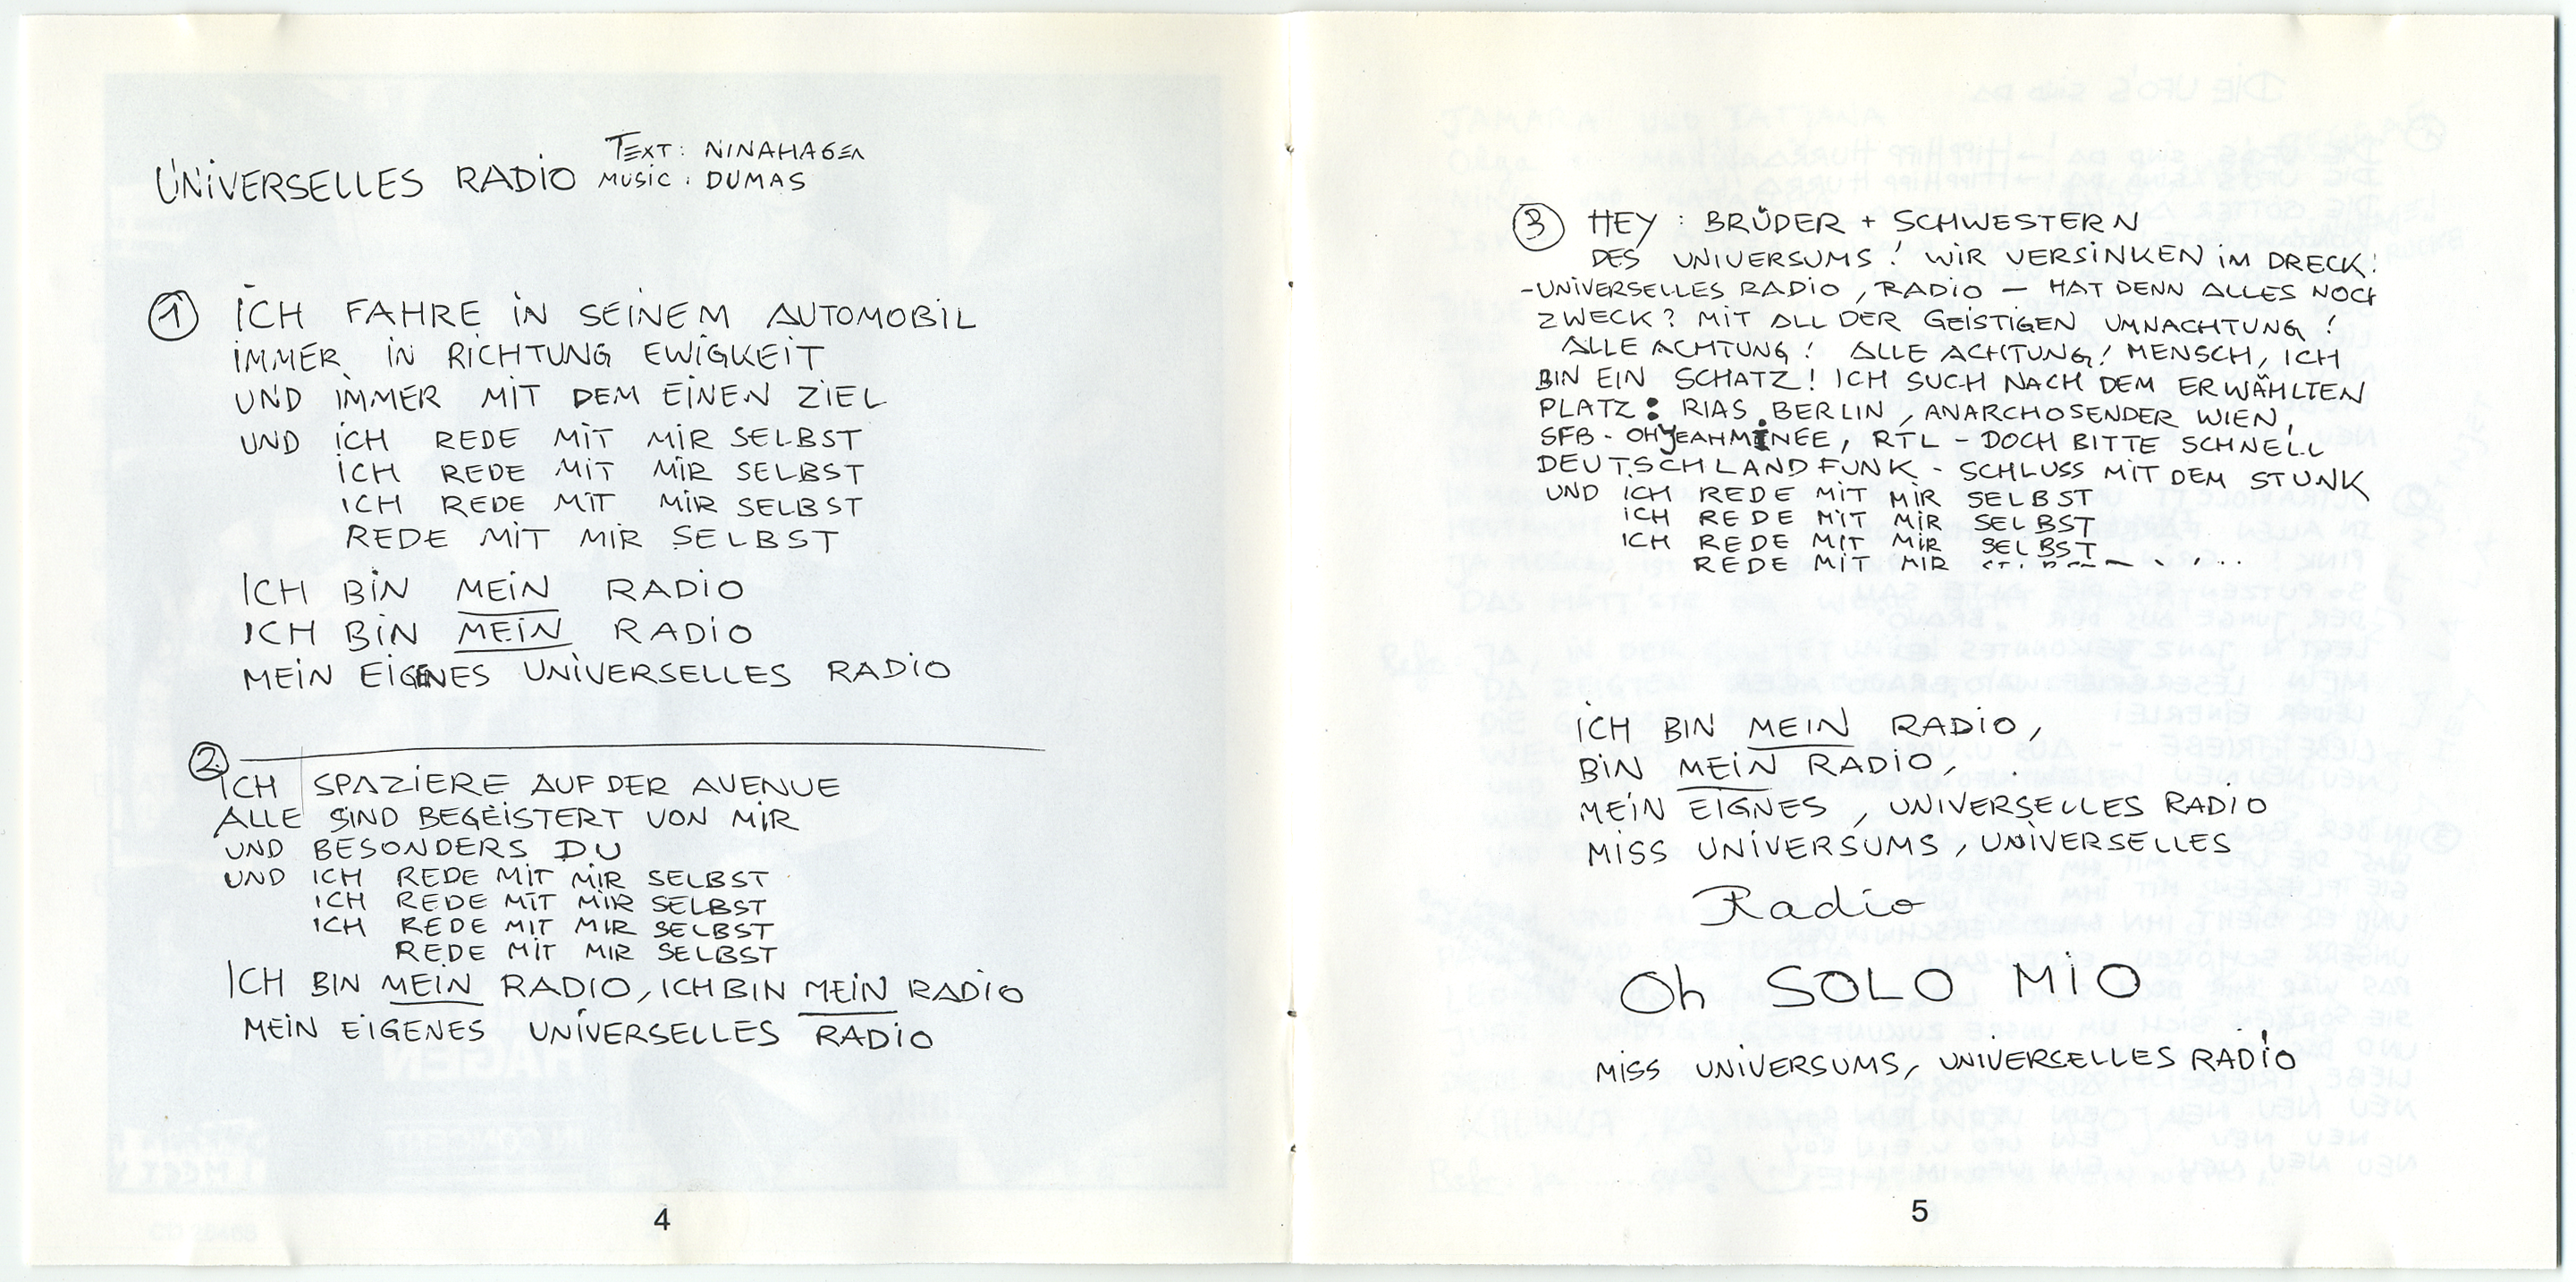 UNIVERSELLES RADIO
TEXT: NINAHAGEN
MUSIC: DUMAS
① ICH FAHRE IN SEINEM AUTOMOBIL
IMMER IN RICHTUNG EWIGKEIT
UND IMMER MIT DEM EINEN ZIEL
UND ICH REDE MIT MIR SELBST
ICH REDE MIT MIR SELBST
ICH REDE MIT MIR SELBST
REDE MIT MIR SELBST
ICH BIN MEIN RADIO
ICH BIN MEIN RADIO
MEIN EIGENES UNIVERSELLES RADIO
②
ICH SPAZIERE AUF DER AVENUE
ALLE SIND BEGEISTERT VON MIR
UND BESONDERS DU
UND ICH REDE MIT MIR SELBST
ICH REDE MIT MIR SELBST
ICH REDE MIT MIR SELBST
REDE MIT MIR SELBST
ICH BIN MEIN RADIO, ICH BIN MEIN RADIO
MEIN EIGENES UNIVERSELLES RADIO
4
③ HEY: BRÜDER + SCHWESTERN
DES UNIVERSUMS! WIR VERSINKEN IM DRECK!
-UNIVERSELLES RADIO, RADIO - HAT DENN ALLES NOCH
ZWECK? MIT ALL DER GEISTIGEN UMNACHTUNG!
ALLE ACHTUNG! ALLE ACHTUNG! MENSCH, ICH
BIN EIN SCHATZ! ICH SUCH NACH DEM ERWÄHLTEN
PLATZ: RIAS BERLIN, ANARCHOSENDER WIEN,
SFB - OHYEAHMINEE, RTL - DOCH BITTE SCHNELL
DEUTSCHLANDFUNK - SCHLUSS MIT DEM STUNK
UND ICH REDE MIT MIR SELBST
ICH REDE MIT MIR SELBST
ICH REDE MIT MIR SELBST
REDE MIT MIR
ICH BIN MEIN RADIO,
BIN MEIN RADIO,
MEIN EIGNES, UNIVERSELLES RADIO
MISS UNIVERSUMS, UNIVERSELLES
Radio
Oh SOLO MIO
MISS UNIVERSUMS, UNIVERSELLES RADIO!
5